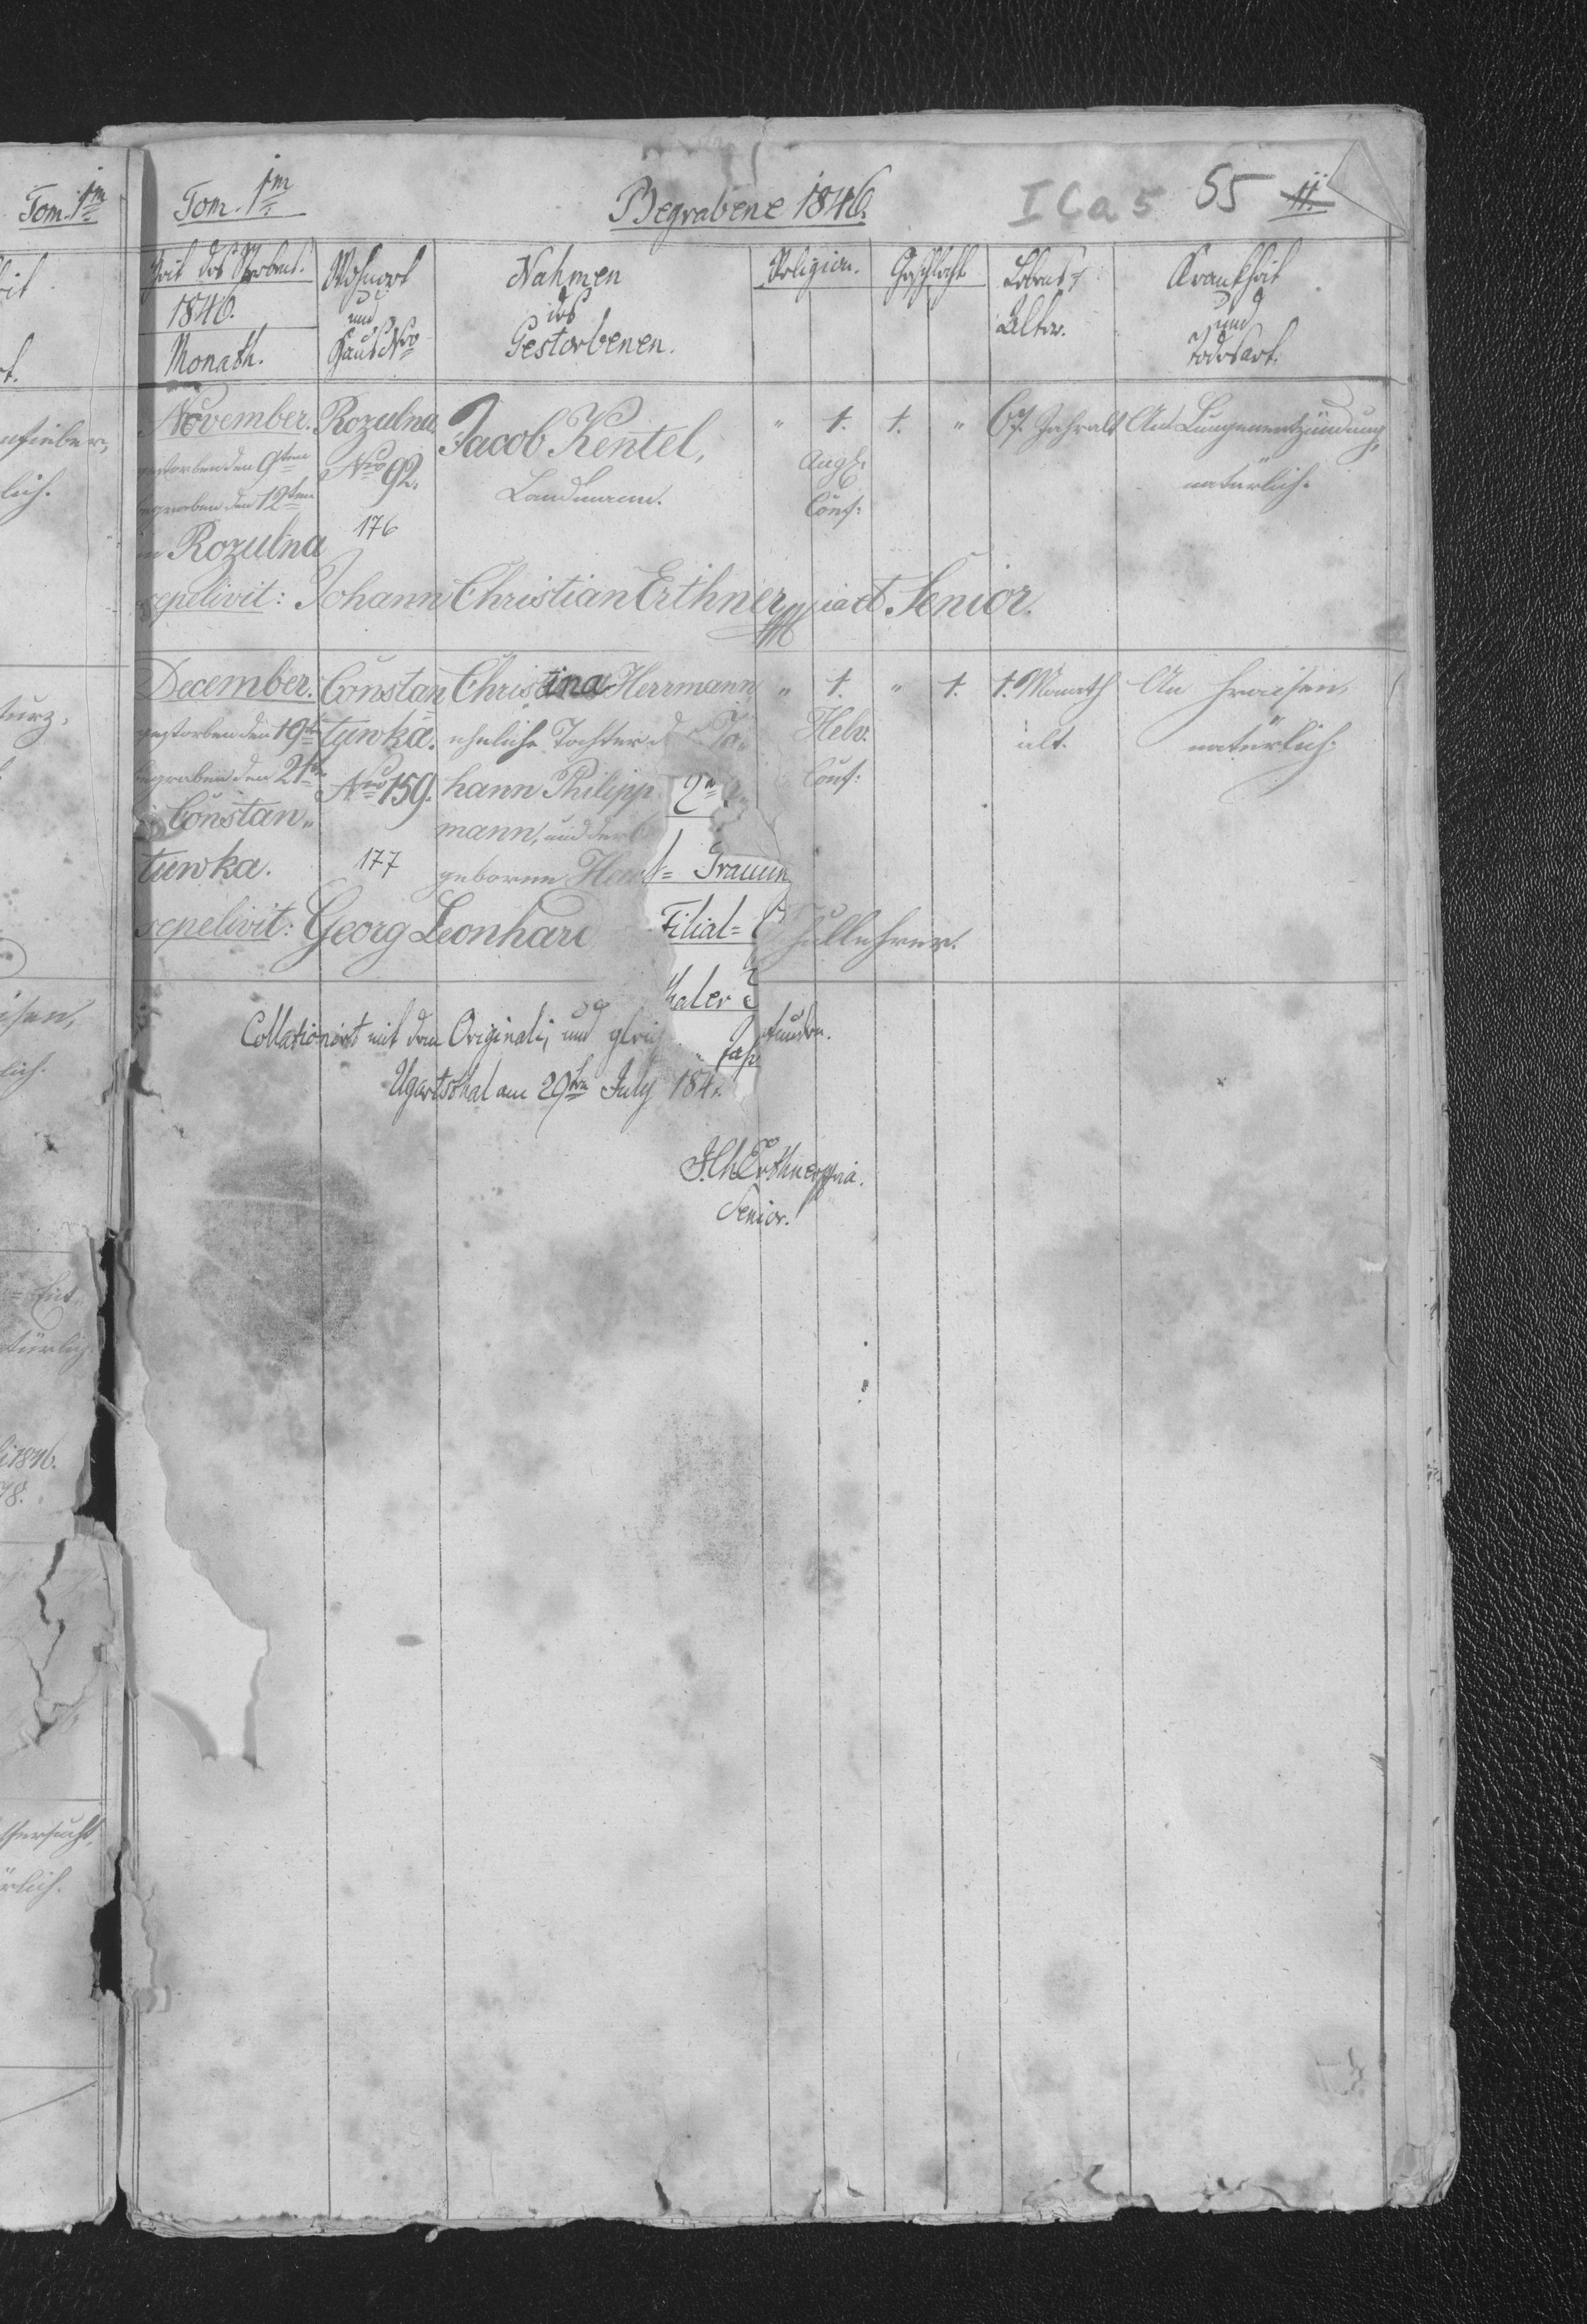 Tom. 1m
Tom. 1m Begrabene 1846. I Ca 5 55 11.
Zeit des Sterbens. Wohnort Nahmen Religion. Geschlecht Lebens= Krankheit
1846. und des Alter. und
Monath. Haus Nro Gestorbenen. Todesart.
November. Rozulna. Jacob Kentel, " 1. 1. " 67. Jahr alt An Lungenentzündung,
gestorben den 9ten Nro 92. Landmann. Augs. natürlich.
begraben den 12ten Conf:
in Rozulna 176
sepelivit: Johann Christian Erthner mpia et Senior.
December. Constan Christina Herrmann " 1. " 1. 1. Monath An Fraisen,
gestorben den 19ten tuwka. eheliche Tochter d Jo„ Helv. alt. natürlich.
begraben den 21ten Nro 159. hann Philipp Conf:
in Constan„ mann, und der
tuwka. 177 geborne
sepelivit: Georg Leonhard Schullehrer.
2n
t= Trauun
Filial=
thaler
Jah
Collationirt mit dem Originali, und glei funden.
Ugartsthal am 29ten July 184
J. Ch. Erthner mpia.
Senior.